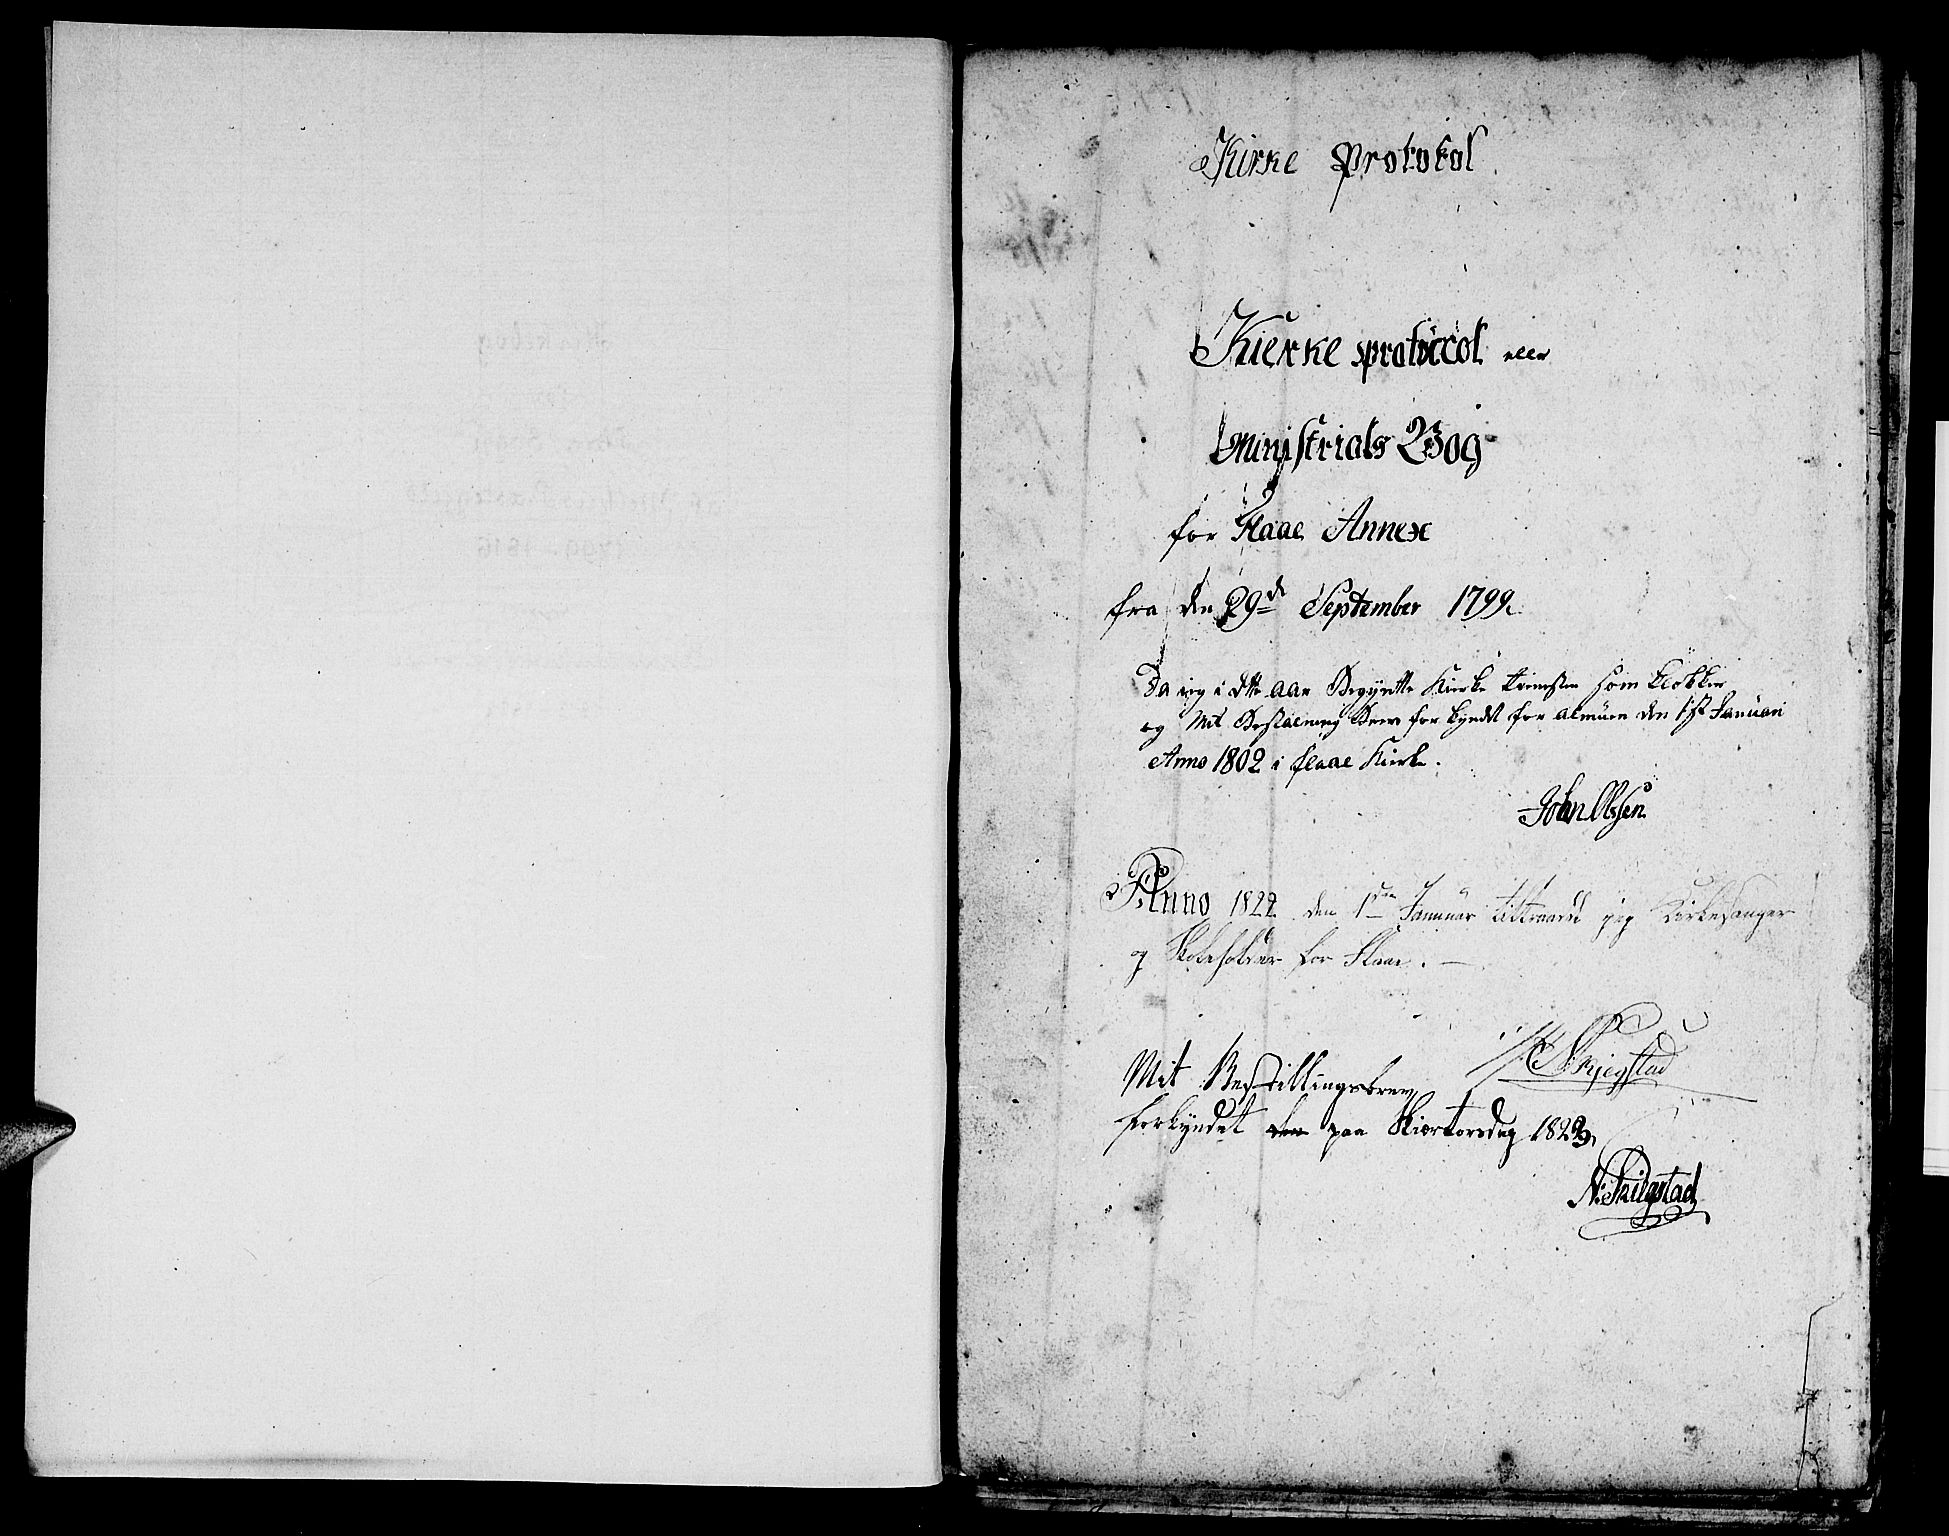 Kirke Protokol
Kierke protocol eller
Ministrials Bog
for Flaae Annex
fra den 29de September 1799
Da ieg i dette aar Begyndte Kierke tienesten som Klokker
og Mit Bestalning Brev for kyndt for almuen den 1ste Januari
Anno 1802 i flaae Kirke.
John Olssen
Anno 1822 den 1ste Januar tiltraadt jeg Kirkesanger
og Skoleholder for Flaae.
N: Skjegstad
Mit Bestillingsbrev
forkyndet den paa Skiertorsdag 1822,
N: Skiegstad